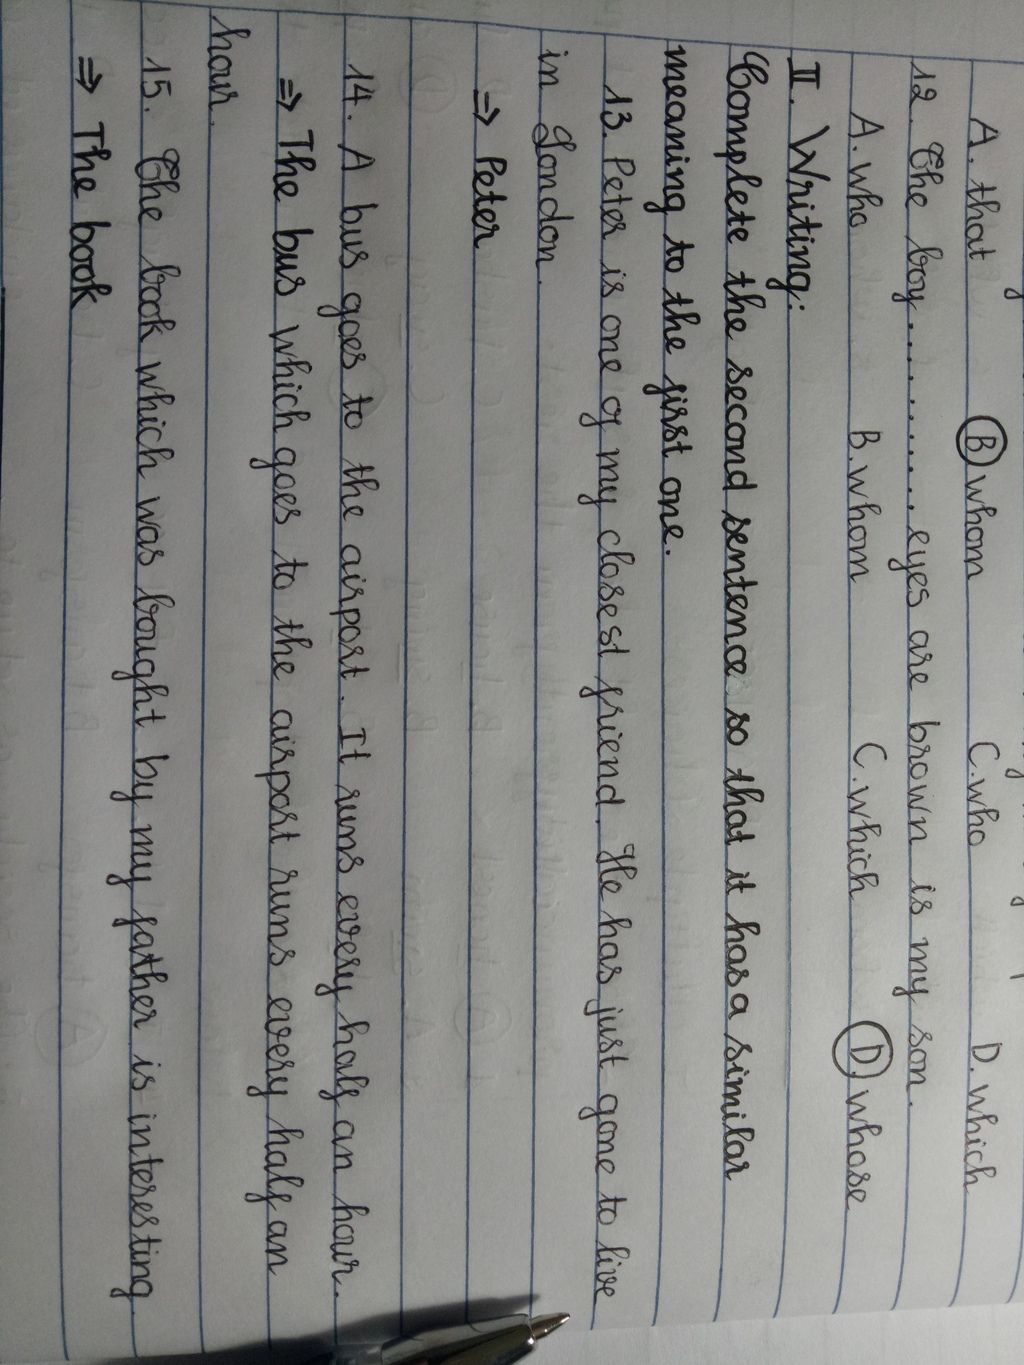 A. that B. whom C. who D. which
12. The boy.............. eyes are brown is my son.
A. who B. whom C. which D. whose
II. Writing:
Complete the second sentence so that it has a similar
meaning to the first one.
13. Peter is one of my closest friend. He has just gone to live
in London.
⇒ Peter
14. A bus goes to the airport. It runs every half an hour.
⇒ The bus which goes to the airport runs every half an
hour.
15. The book which was bought by my father is interesting
⇒ The book